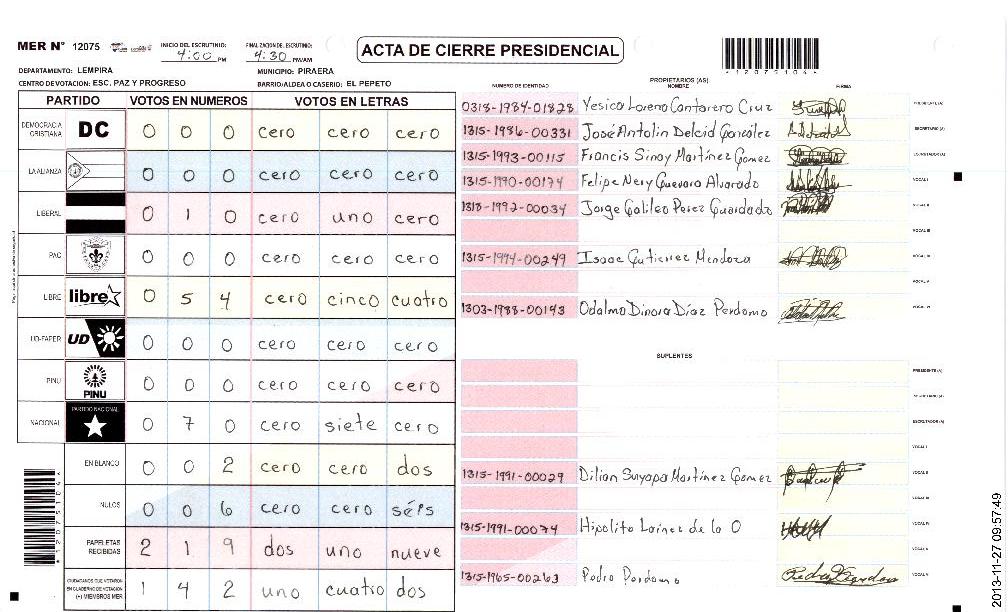 MER N° 12075 INICIO DEL ESCRUTINIO: 4:00 PM FINALIZACION DEL ESCRUTINIO: 4:30 PM/AM
ACTA DE CIERRE PRESIDENCIAL
*12075104*
DEPARTAMENTO: LEMPIRA MUNICIPIO: PIRAERA
CENTRO DE VOTACION: ESC. PAZ Y PROGRESO BARRIO/ALDEA O CASERIO: EL PEPETO
PARTIDO VOTOS EN NUMEROS VOTOS EN LETRAS
DEMOCRACIA CRISTIANA DC 0 0 0 cero cero cero
LA ALIANZA 0 0 0 cero cero cero
LIBERAL 0 1 0 cero uno cero
PAC 0 0 0 cero cero cero
LIBRE libre 0 5 4 cero cinco cuatro
UD-FAPER UD 0 0 0 cero cero cero
PINU PINU 0 0 0 cero cero cero
NACIONAL PARTIDO NACIONAL 0 7 0 cero siete cero
EN BLANCO 0 0 2 cero cero dos
NULOS 0 0 6 cero cero séis
PAPELETAS RECIBIDAS 2 1 9 dos uno nueve
CIUDADANOS QUE VOTARON EN CUADERNO DE VOTACION (+) MIEMBROS MER 1 4 2 uno cuatro dos
*12075104*
PROPIETARIOS (AS):
NUMERO DE IDENTIDAD NOMBRE FIRMA
0318-1984-01828 Yesica Lorena Cantarero Cruz PRESIDENTE (A)
1315-1986-00331 José Antolin Delcid González SECRETARIO (A)
1315-1993-00115 Francis Sinoy Martínez Gomez ESCRUTADOR (A)
1315-1990-00174 Felipe Nery Guevara Alvarado VOCAL I
1313-1992-00034 Jorge Galileo Perez Guardado VOCAL II
VOCAL III
1315-1994-00249 Isaac Gutierrez Mendoza VOCAL IV
VOCAL V
1303-1988-00143 Odalma Dinora Díaz Perdomo VOCAL VI
SUPLENTES
PRESIDENTE (A)
SECRETARIO (A)
ESCRUTADOR (A)
VOCAL I
1315-1991-00029 Dilian Suyapa Martínez Gomez VOCAL II
VOCAL III
1315-1991-00074 Hipolito Lainez de la O VOCAL IV
VOCAL V
1315-1965-00263 Pedro Perdomo VOCAL VI
2013-11-27 09:57:49